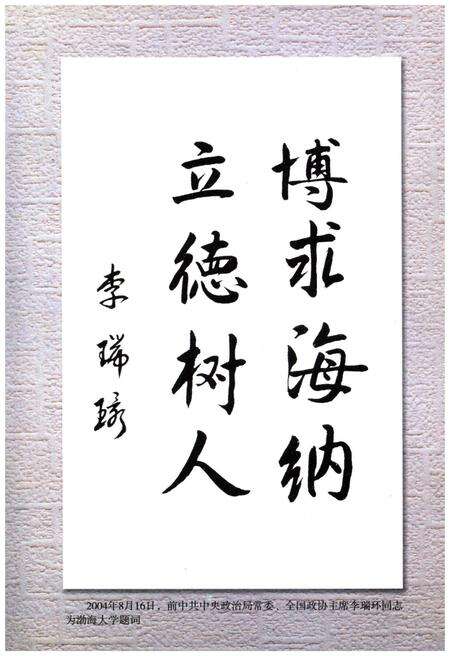 博求海纳
立德树人
李瑞环
2004年8月16日，前中共中央政治局常委、全国政协主席李瑞环同志
为渤海大学题词